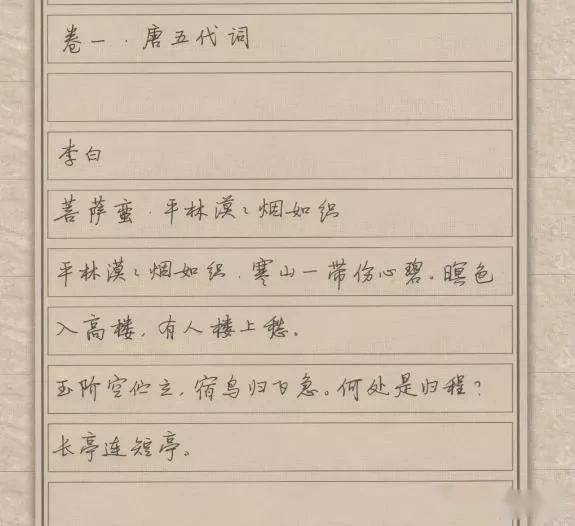 卷一·唐五代词
李白
菩萨蛮·平林漠〻烟如织
平林漠〻烟如织，寒山一带伤心碧。暝色
入高楼，有人楼上愁。
玉阶空伫立，宿鸟归飞急。何处是归程？
长亭连短亭。